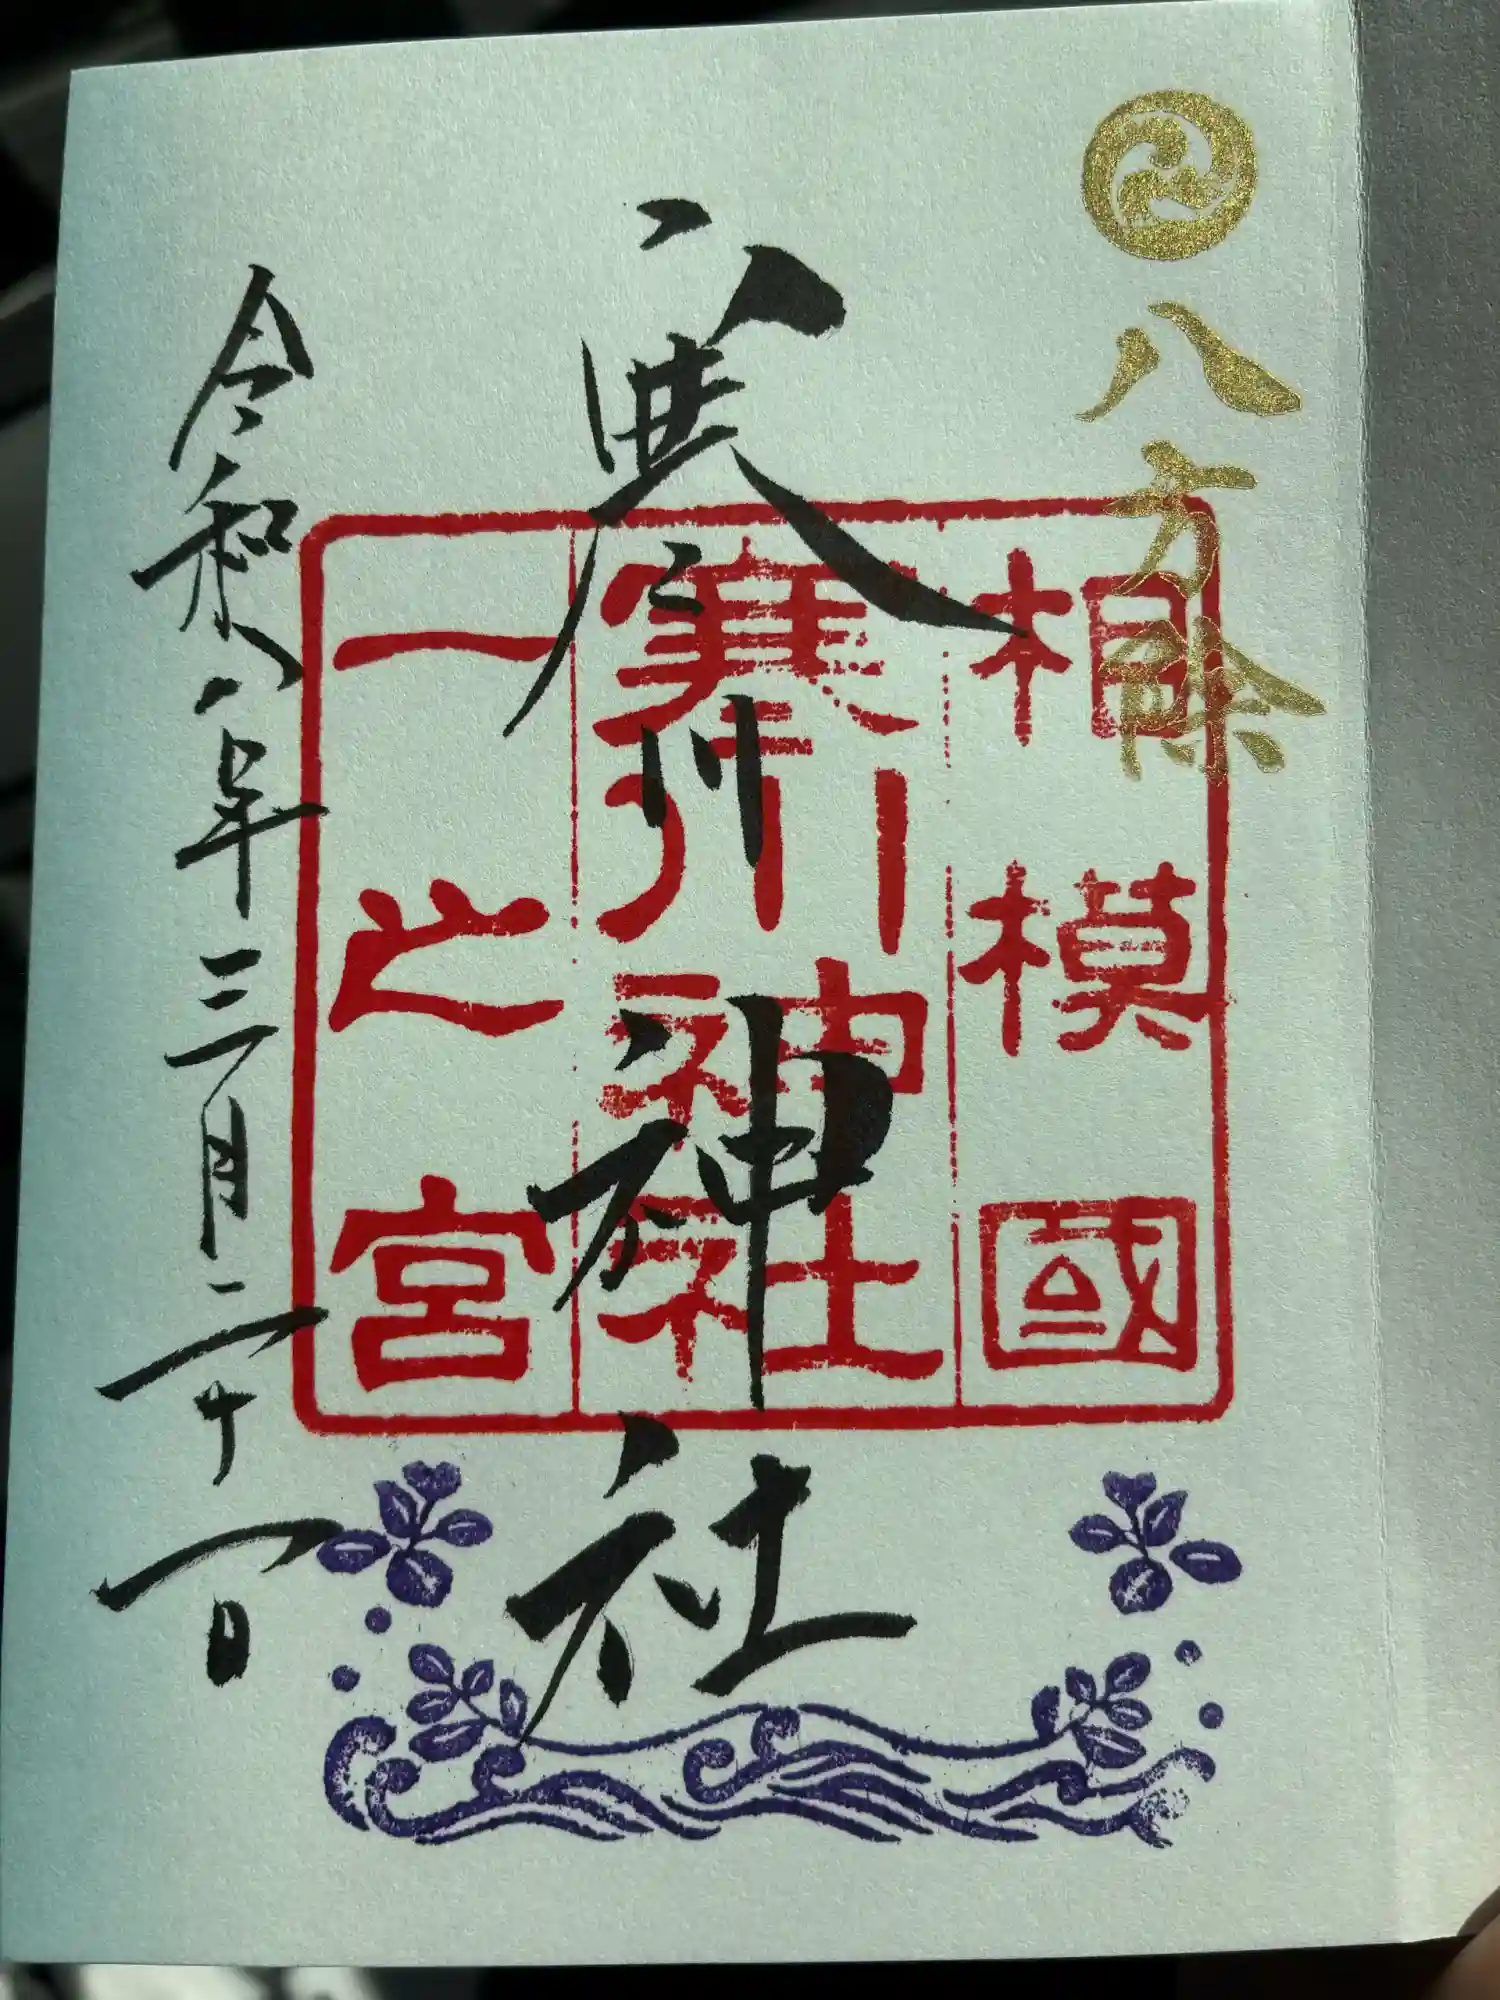 八方除
相模國
寒川神社
一之宮
寒川神社
令和八年三月二十一日